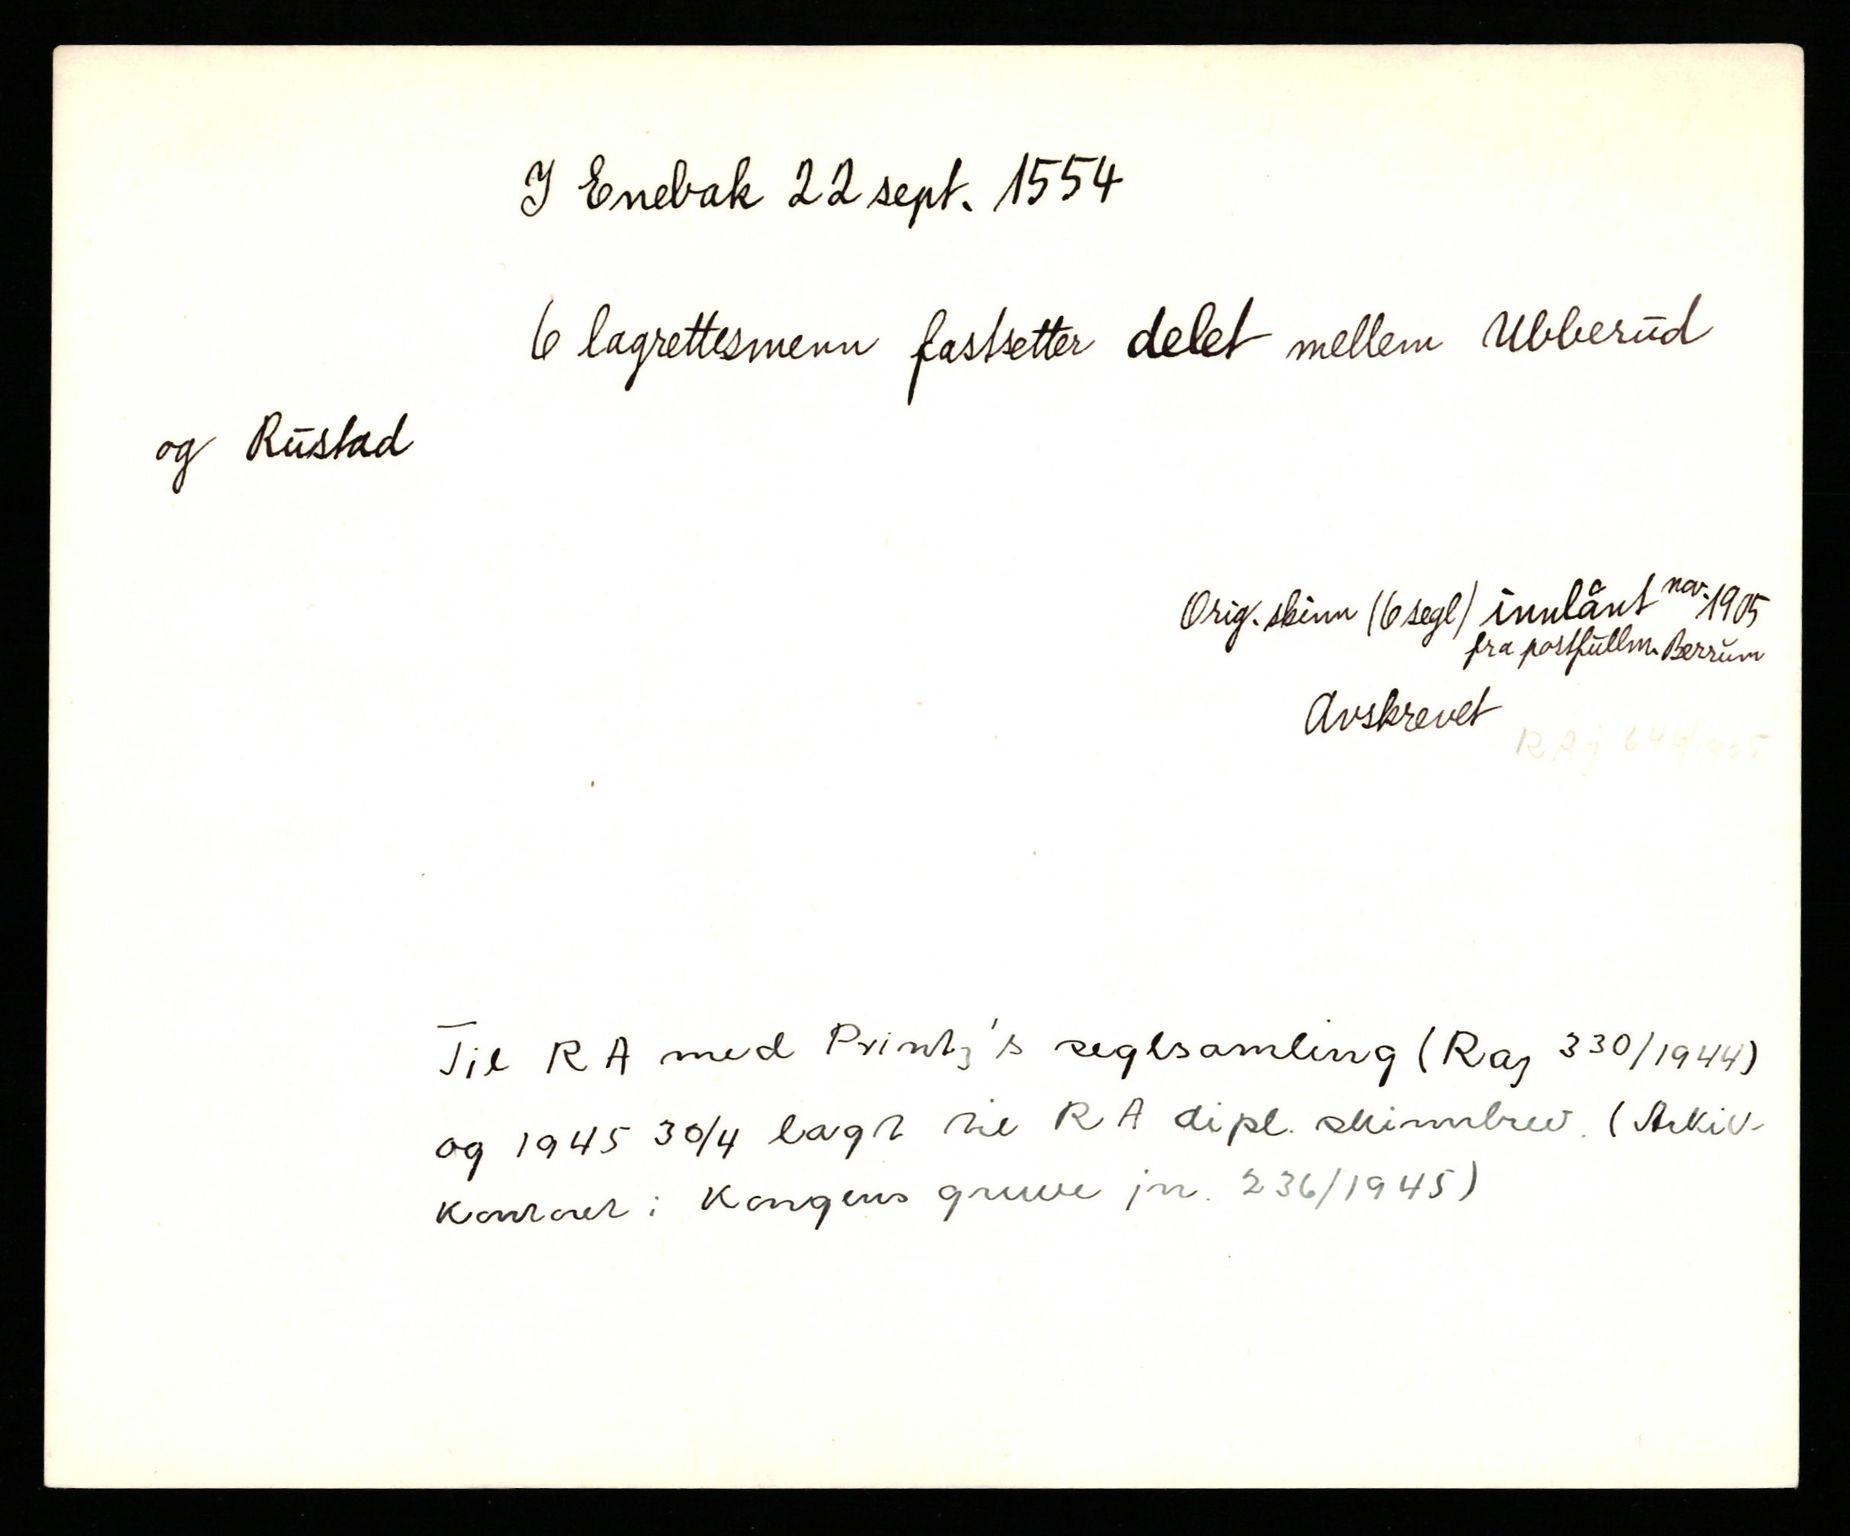 I Enebak 22 sept. 1554
6 lagrettesmenn fastsetter delet mellem Ubberud
og Rustad
Orig. skinn (6 segl) innlånt nov. 1905
fra postfullm. Berrum
Avskrevet
RAj 644/1905
Til RA med Printz's seglsamling (Raj 330/1944)
og 1945 30/4 lagt til RA dipl. skinnbrev. (Arkiv-
kontoret i Kongens gruve jn. 236/1945)